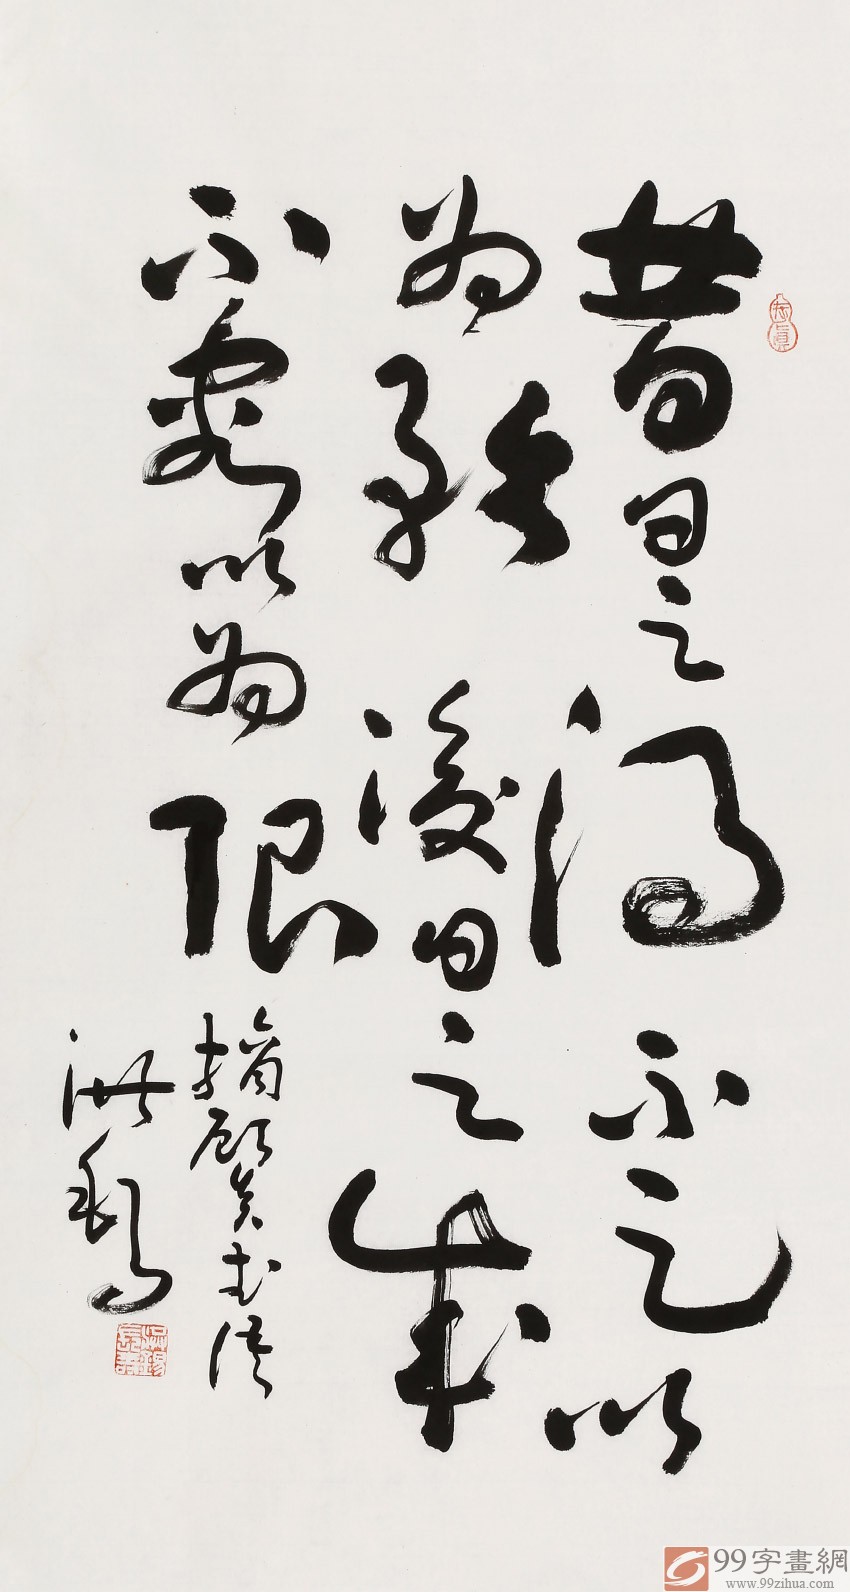 昔日之得不足以
為矜後日之成
不容以為限
摘顧炎武語
99字畫網
www.99zihua.com